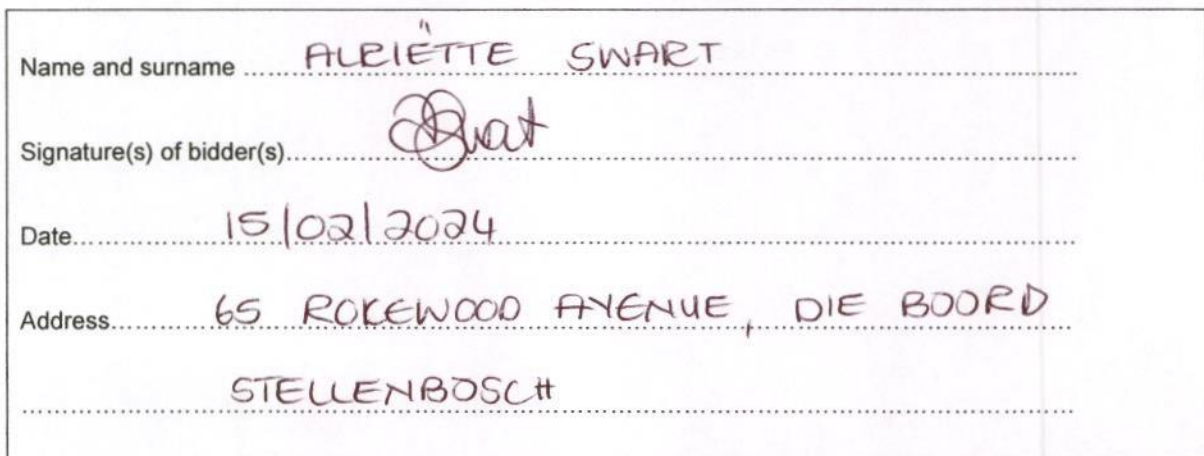 Name and surname ALRIËTTE SWART
Signature(s) of bidder(s)
Date 15/02/2024
Address 65 ROKEWOOD AVENUE, DIE BOORD
STELLENBOSCH